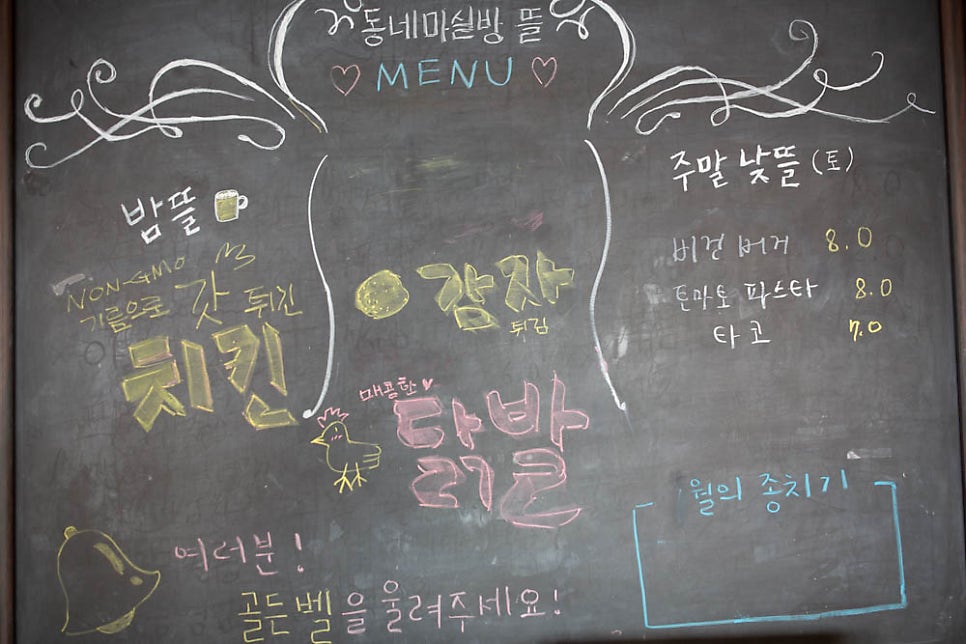 동네마실방 뜰
MENU
밤뜰
NON-GMO
기름으로 갓 튀긴
치킨
감자
튀김
매콤한
닭발
주말 낮뜰 (토)
비건 버거 8.0
토마토 파스타 8.0
타코 7.0
월의 종치기
여러분!
골든벨을 울려주세요!